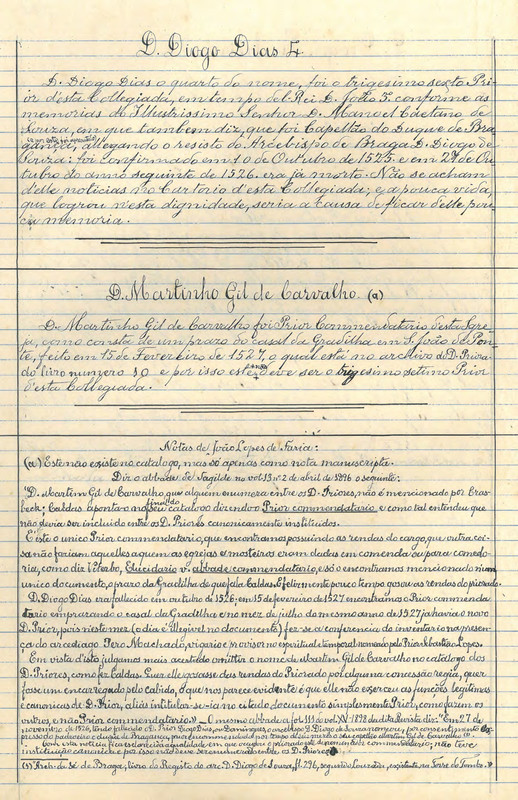 D. Diogo Dias 4.
D. Diogo Dias o quarto do nome, foi o trigesimo sexto Pri-
or d'esta Collegiada, em tempo del-Rei D. João 3º conforme as
memorias do Illustrissimo Senhor D. Manoel Caetano de
Souza, em que tambem diz, que foi Capellão do Duque de Bra-
gança, allegando o resisto do Arcebispo de Braga D. Diogo de
Souza: foi confirmado em 10 de Outubro de 1525 e em 29 de Ou-
tubro do anno seguinte de 1526 era já morto. Não se acham
delle noticias no Cartorio d'esta Collegiada; e a pouca vida,
que logrou n'esta dignidade, seria a causa de ficar delle pou-
ca memoria.
D. Martinho Gil de Carvalho. (a)
D. Martinho Gil de Carvalho foi Prior Commendatario d'esta Egre-
ja, como consta de um prazo do casal da Gradilha em S. João de Pon-
te, feito em 15 de Fevereiro de 1527, o qual está no archivo do D. Priora-
do livro numero 10 e por isso este deve ser o trigesimo setimo Prior
d'esta Collegiada.
Notas de João Lopes de Faria:
(a) Este não existe no catalogo, mas só apenas como nota manuscripta.
Diz o abbade de Tagilde no vol. 13 nº 2 de abril de 1896 o seguinte:
"D. Martim Gil de Carvalho, que alguem enumera entre os D. Priores, não é mencionado por Cras-
beck; Caldas aponta-o no seu catalogo dizendo-o Prior commendatario e como tal entendeu que
não devia ser incluido entre os D. Priores canonicamente instituidos.
E' este o unico Prior commendatario, que encontramos possuindo as rendas do cargo que outra coi-
sa não faziam aquelles a quem as egrejas e mosteiros eram dadas em comenda ou para comedo-
ria, como diz Viterbo, Elucidario v. abbade commendatario, e só o encontramos mencionado num
unico documento, o prazo da Gradilha de que fala Caldas. E felizmente pouco tempo gosou as rendas do priorado.
D. Diogo Dias era fallecido em outubro de 1526; em 15 de fevereiro de 1527 encontramos o Prior commenda-
tario emprazando o casal da Gradilha e no mez de julho do mesmo anno de 1527 já havia o novo
D. Prior, pois neste mez (o dia é illegivel no documento) fez-se a conferencia do inventario na presen-
ça do arcediago Pero Machado, vigario e provisor no espiritual e temporal nomeado pelo Prior Sebastião Lopes.
Em vista d'isto julgamos mais acertado omittir o nome de Martim Gil de Carvalho no catalogo dos
D. Priores, como fez Caldas. Quer elle gosasse das rendas do Priorado por alguma concessão regia, quer
fosse um encarregado pelo cabido, o que nos parece evidente é que elle não exerceu as funcções legitimas
e canonicas de D. Prior, aliás intitular-se-ia no citado documento simplesmente Prior, como fazem os
outros, e não Prior commendatario. — O mesmo abbade a fol. 111 do vol. XV 1898 da dita Revista diz: "Em 27 de
novembro de 1526, tendo fallecido do Prior Diogo Dias, ou Domingues, o arcebispo D. Diogo de Souza
Com esta noticia fica esclarecida a qualidade, em que occupou o priorado este denominado commendatario; não teve
instituição canonica e por isso não deve ser enumerado entre os D. Priores.
(1) Arch. da Sé de Braga, livro do Registo do arc. D. Diogo de Souza, fl. 296, segundo Louzada, existente na Torre do Tombo."